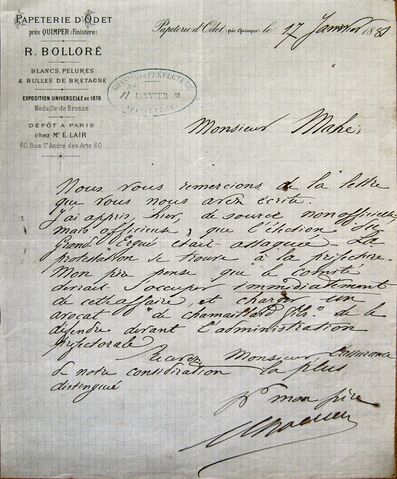 PAPETERIE D'ODET
près QUIMPER (Finistère)
R. BOLLORÉ
BLANCS, PELURES
& BULLES DE BRETAGNE
EXPOSITION UNIVERSELLE DE 1878
Médaille de Bronze
DÉPÔT A PARIS
chez Mr E. LAIR
60, Rue St André des Arts, 60
Papeterie d'Odet, (près Quimper) le 17 Janvier 1881
JANVIER
Monsieur Mahé,
Nous vous remercions de la lettre
que vous nous avez écrite.
J'ai appris, hier, de source non officielle
mais officieuse, que l'élection du
Grand Ergué était attaquée. La
protestation se trouve à la préfecture.
Mon père pense que le comité
devrait s'occuper immédiatement
de cette affaire, et charger un
avocat "de Chamaillard fils" de la
défendre devant l'administration
préfectorale.
Recevez Monsieur l'assurance
de notre considération la plus
distinguée
Pr mon père